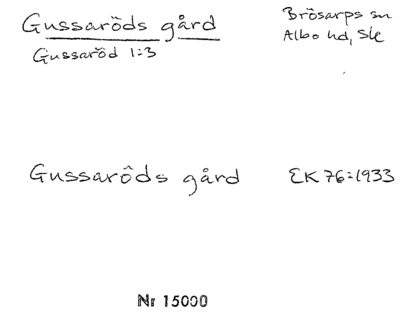 Gussaröds gård
Gussaröd 1:3
Brösarps sn
Albo hd, Skе
Gussaröds gård
EK 76:1933
Nr 15000